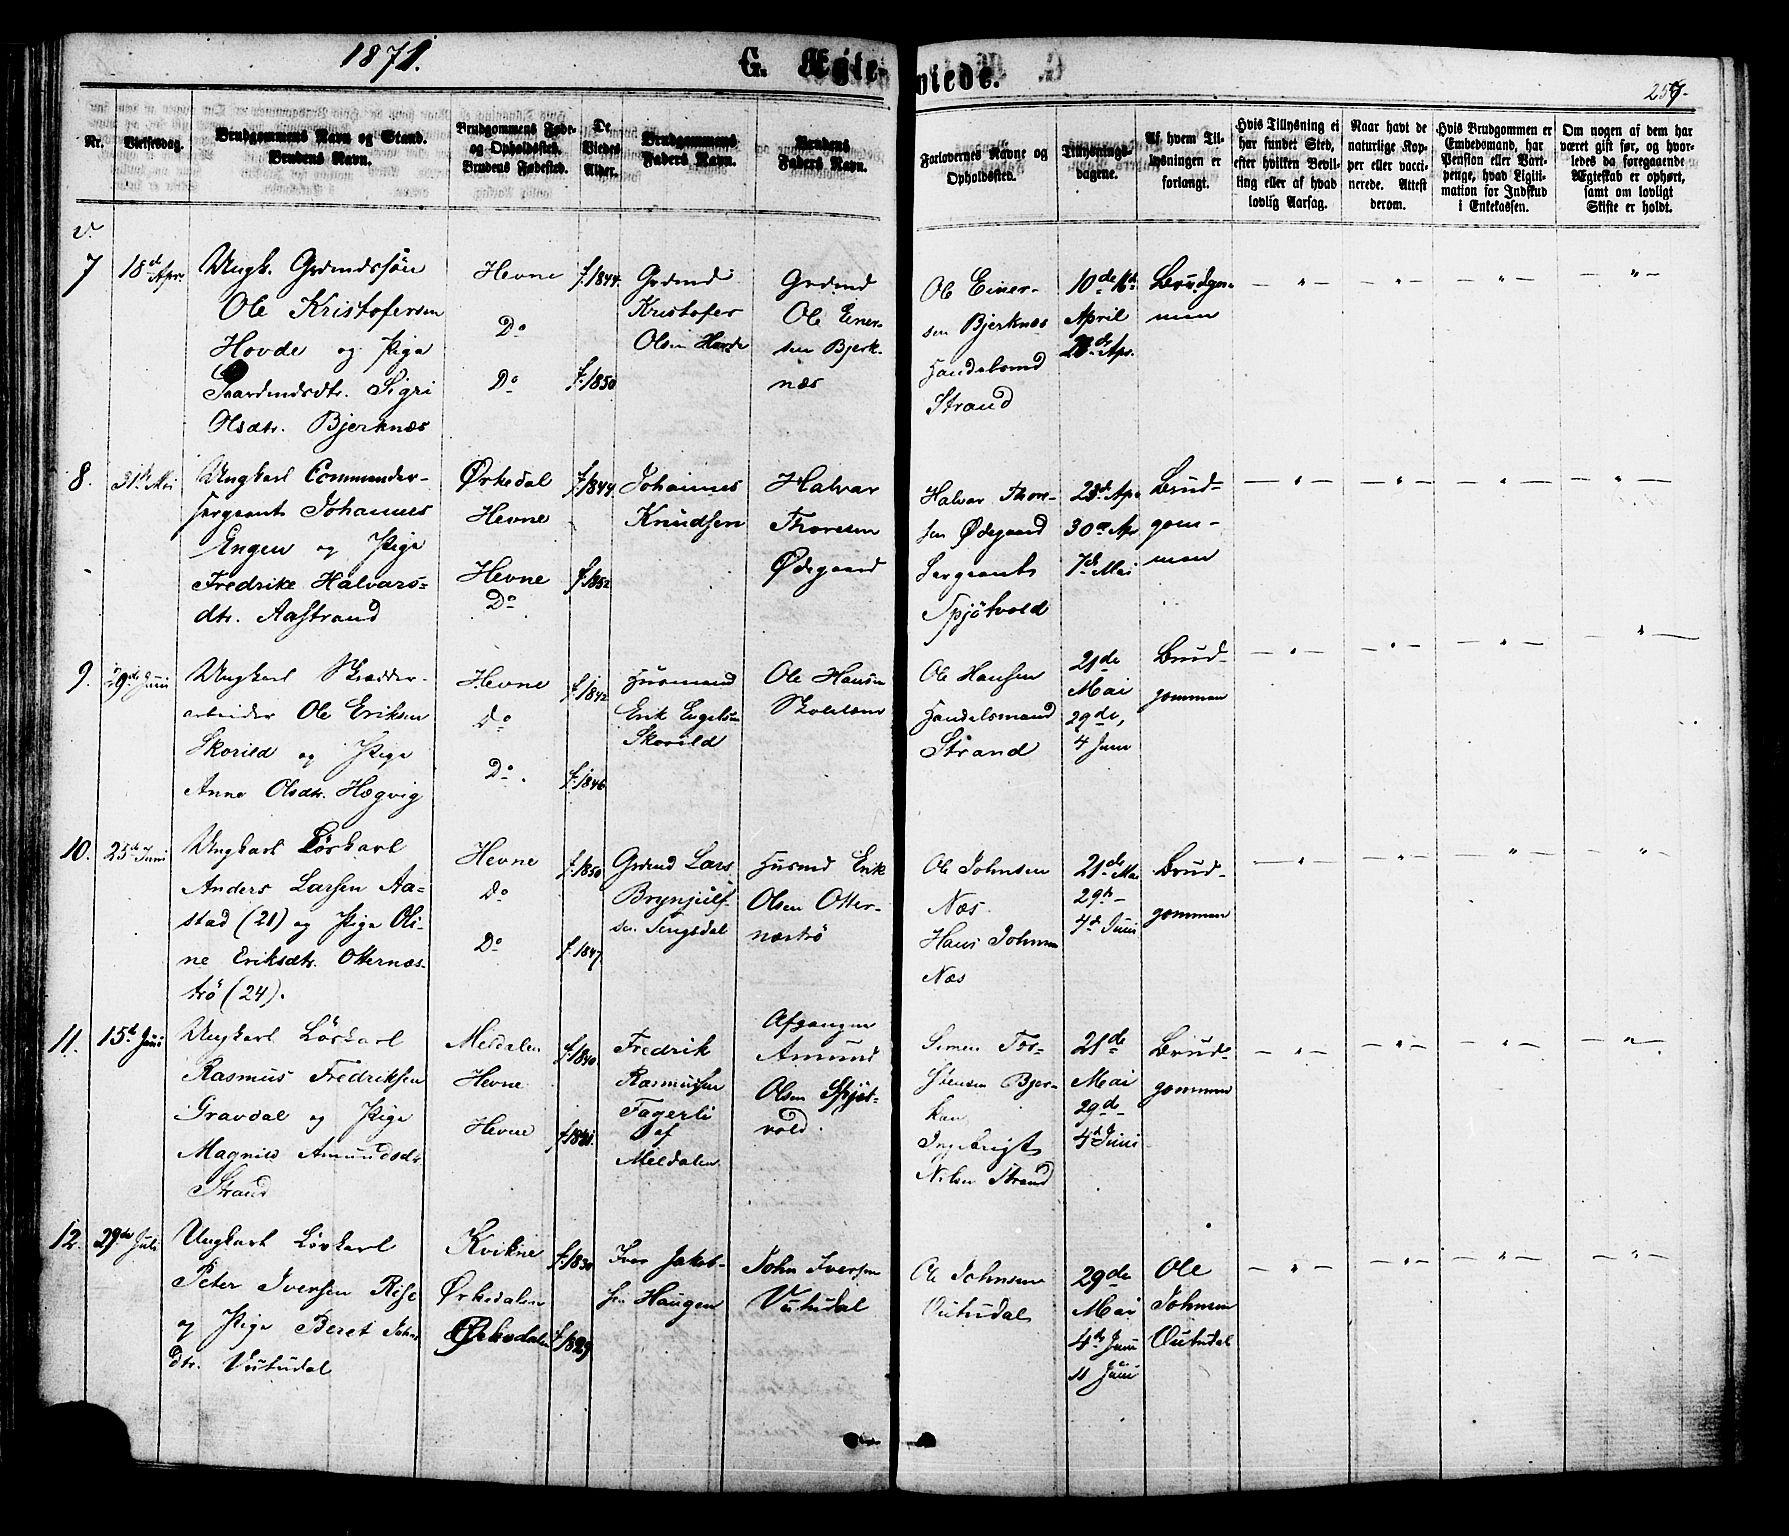 1871.
G. Ægte-
viede.
Nr.
Vielsesdag.
Brudgommens Navn og Stand.
Brudens Navn.
Brudgommens Føde-
og Opholdssted.
Brudens Fødested.
De
Viedes
Alder.
Brudgommens
Faders Navn.
Brudens
Faders Navn.
Forlovernes Navne og
Opholdssted.
Tillysnings-
dagene.
Af hvem Til-
lysningen er
forlangt.
Hvis Tillysning ei
har fundet Sted,
efter hvilken Bevil-
ling eller af hvad
lovlig Aarsag.
Naar havt de
naturlige Kop-
per eller vacci-
nerede. Attest
derom.
Hvis Brudgommen er
Embedsmand, har
Pension eller Vart-
penge, hvad Ligiti-
mation for Indskud
i Enkekassen.
Om nogen af dem har
været gift før, og hvor-
ledes da foregaaende
Ægteskab er ophørt,
samt om lovligt
Skifte er holdt.
7
18de Apr.
Ungk. Grdmdssön
Ole Kristofersen
Hovde og Pige
Gaardmdsdtr. Sigri
Olsdtr. Bjerknæs
Hevne
Do
Do
f.1844.
f.1850
Grdmd
Kristofer
Olsen Hovde
Grdmd
Ole Einer-
sen Bjerk-
næs
Ole Einer-
sen Bjerknæs
Handelsmd
Strand
10de 16de
April
23de Apr.
Brudgom-
men
8.
31te Mai
Ungkarl Commander-
sergeant Johannes
Engen og Pige
Fredrike Halvars-
dtr. Aastrand
Ørkedal
Hevne
Hevne
Do
f.1844.
f.1852
Johannes
Knudsen
Halvar
Thoresen
Ødegaard
Halvar Thore-
sen Ødegaard
Sergeant
Spjötvold
23de Apr
30te Apr
7de Mai
Brud-
gom-
men
9.
19de Juni
Ungkarl Skrædder-
arbeider Ole Eriksen
Skorild og Pige
Anne Olsdtr. Hægvig
Hevne
Do
Do.
f.1842
f.1846
Husmand
Erik Engelsen
Skorild
Ole Hansen
Ole Hansen
Handelsmand
Strand
21de
Mai
29de,
4 Juni
Brud-
gommen
10.
25de Juni
Ungkarl Löskarl
Anders Larsen Aa-
stad (21) og Pige Oli-
ne Eriksdtr. Otternæs-
trö (24).
Hevne
Do
Do
f.1850
f.1847.
Grdmd Lars
Brynjulf-
sen Tingsdal
Husmd Erik
Olsen Otter-
næströ
Ole Johnsen
Næs.
Hans Johnsen
Næs
21de Mai
29de
4de Juni
Brud-
gommen
11.
15de Juni
Ungkarl Löskarl
Rasmus Fredriksen
Gravdal og Pige
Magnild Amundsdtr.
Strand
Meldalen
Hevne
Hevne
f.1840
Fredrik
Rasmussen
Fagerli
af
Meldalen
Afgangen
Amund
Olsen Spjöt-
vold.
Simen Tor-
stensen Bjer-
kan
Ingebrigt
Nilsen Strand
21de
Mai
29de
4de Juni
Brud-
gommen
12.
29de Juli
Ungkarl Löskarl
Peter Iversen Rise
og Pige Beret Johns
dtr. Vutudal
Kvikne
Ørkedalen
Ørkedalen
f.1830
f.1829
Iver Jakob-
sen Haugen
John Iversen
Vutudal
Ole Johnsen
Vutudal
29de
Mai
4de Juni
11 Juni
Ole
Johnsen
Vutudal